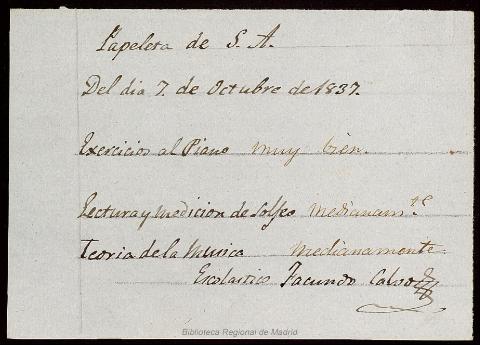 Papeleta de S. A.
Del dia 7. de Octubre de 1837.
Exercicios al Piano muy bien.
Lectura y medicion de Solfeo medianam.te
Teoria de la Musica medianamente
Escolastico Facundo Calvo
Biblioteca Regional de Madrid